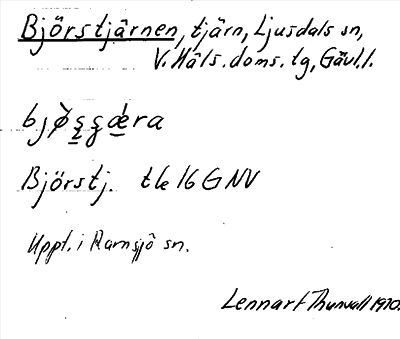 Björstjärnen, tjärn, Ljusdals sn,
V. Häls. doms. tg, Gävl. l.
Björstj. tle 16 G NV
Uppt. i Ramsjö sn.
Lennart Thunvall 1970.